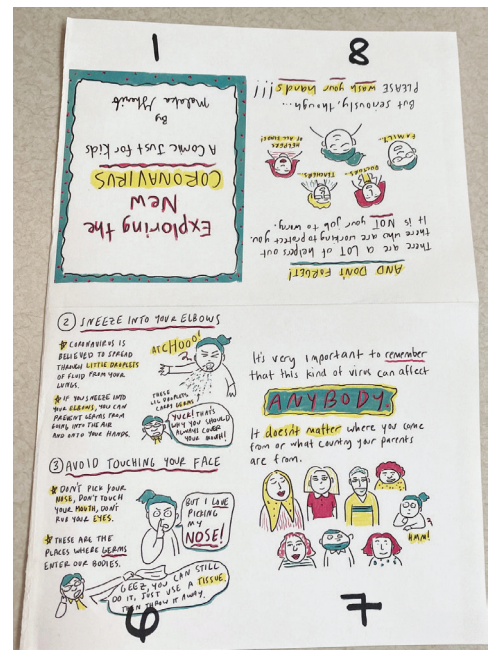 1
Exploring the
New
CORONAVIRUS
A Comic Just for Kids
By
Malaka Gharib
8
AND DON'T FORGET!
There are a LOT of helpers out
there who are working to protect you.
It is NOT your job to worry.
DOCTORS...
TEACHERS...
FAMILY...
HELPERS
OF ALL KINDS!
But seriously, though...
PLEASE wash your hands!!!
2 SNEEZE INTO YOUR ELBOWS
CORONAVIRUS IS
BELIEVED TO SPREAD
THROUGH LITTLE DROPLETS
OF FLUID FROM YOUR
LUNGS.
IF YOU SNEEZE INTO
YOUR ELBOWS, YOU CAN
PREVENT GERMS FROM
GOING INTO THE AIR
AND ONTO YOUR HANDS.
ACHOOO!
THESE
LIL DROPLETS
CARRY GERMS
YUCK! THAT'S
WHY YOU SHOULD
ALWAYS COVER
YOUR MOUTH!
3 AVOID TOUCHING YOUR FACE
DON'T PICK YOUR
NOSE, DON'T TOUCH
YOUR MOUTH, DON'T
RUB YOUR EYES.
THESE ARE THE
PLACES WHERE GERMS
ENTER OUR BODIES.
BUT I LOVE
PICKING
MY
NOSE!
GEEZ, YOU CAN STILL
DO IT, JUST USE A TISSUE,
THEN THROW IT AWAY.
6
It's very important to remember
that this kind of virus can affect
ANYBODY.
It doesn't matter where you come
from or what country your parents
are from.
HMM!
7